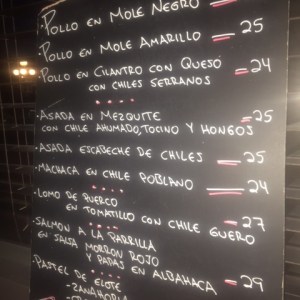 ·POLLO EN MOLE NEGRO
·POLLO EN MOLE AMARILLO — 25
·POLLO EN CILANTRO CON QUESO — 24
CON CHILES SERRANOS
·ASADA EN MEZQUITE — 25
CON CHILE AHUMADO, TOCINO Y HONGOS
·ASADA ESCABECHE DE CHILES — 25
·MACHACA EN CHILE POBLANO — 24
·LOMO DE PUERCO
EN TOMATILLO CON CHILE GUERO — 27
·SALMON A LA PARRILLA
EN SALSA MORRON ROJO
Y PAPAS EN ALBAHACA — 29
·PASTEL DE ELOTE
-ZANAHORIA